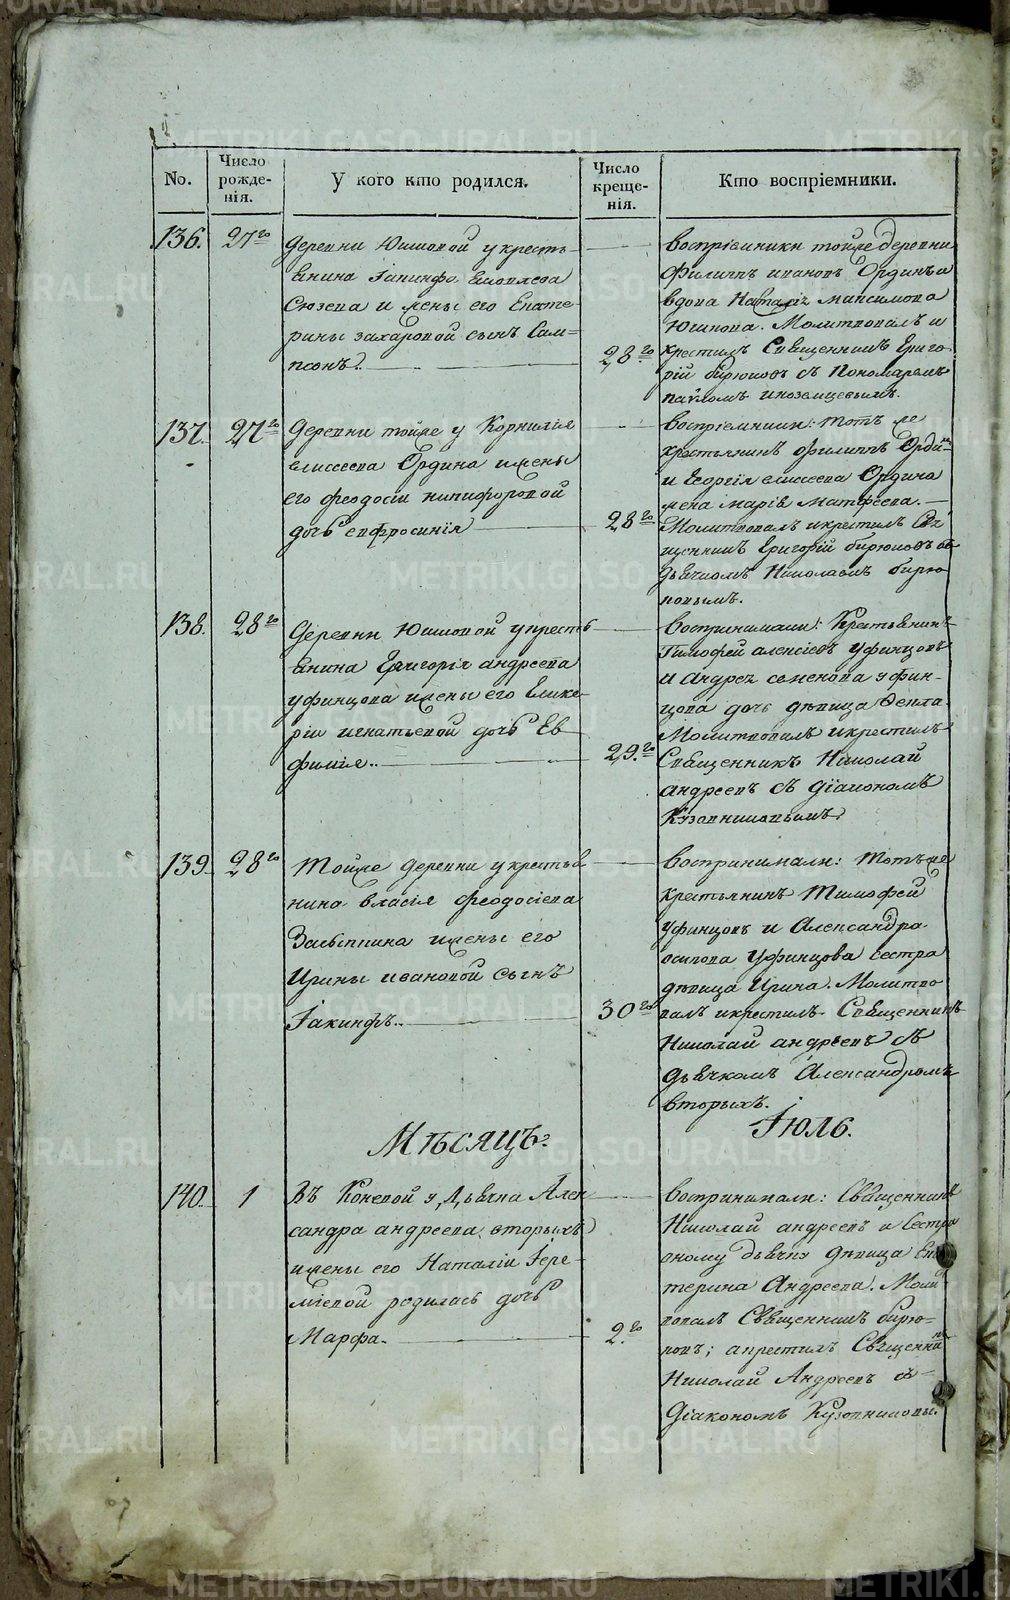 No.
Число рожде-нія.
У кого кто родился.
Число креще-нія.
Кто воспріемники.
136.
27го
деревни Юшковой у кресть-
янина Іакинфа
Сюзева и жены его Екате-
рины захаровой сынъ Сам-
псонъ.
28го
воспріемники тойже деревни
Филиппъ ивановъ Ординъ и
вдова Наталія максимова
Югинова. Молитвовалъ и
крестилъ Священникъ Григо-
рій бирюковъ съ Пономаремъ
павломъ иноземцевымъ.
137.
27го
деревни тойже у Корнилія
елисеева Ордина и жены
его феодосіи никифоровой
дочь евфросинія
28го
воспріемники: тотъ же
крестьянинъ Филиппъ Ординъ
и Георгія елисеева Ордина
жена марія матфеева.
Молитвовалъ и крестилъ Свя-
щенникъ Григорій бирюковъ съ
дьячкомъ Николаемъ бирю-
ковымъ.
138.
28го
деревни Юшковой у кресть-
янина Григорія андреева
уфинцова и жены его Глике-
ріи игнатьевой дочь Ев-
фимія.
29.го
воспринимали: Крестьянинъ
Тимофей алексіевъ уфинцовъ
и Андрея семенова уфин-
цова дочь дѣвица Фекла.
Молитвовалъ и крестилъ
Священникъ Николай
андреевъ съ діакономъ
Кузовниковымъ
139
28го
тойже деревни у крестья-
нина власія феодосіева
Засыпкина и жены его
Ирины ивановой сынъ
Іакинфъ.
30го
воспринимали: тотъже
крестьянинъ Тимофей
уфинцовъ и Александра
осипова уфинцова сестра
дѣвица Ирина. Молитво-
валъ и крестилъ Священникъ
Николай андреевъ съ
дьячкомъ Александромъ
вторыхъ.
Мѣсяцъ
Іюль.
140.
1
Въ Коневой у Дьячка Алек-
сандра андреева вторыхъ
и жены его Наталіи Іере-
міевой родилась дочь
Марфа.
2.го
воспринимали: Священникъ
Николай андреевъ и Сестра
оному дьячку дѣвица Ека-
терина Андреева. Молит-
вовалъ Священникъ бирю-
ковъ; а крестилъ Священникъ
Николай Андреевъ съ
Діакономъ Кузовниковы.
METRIKI.GASO-URAL.RU